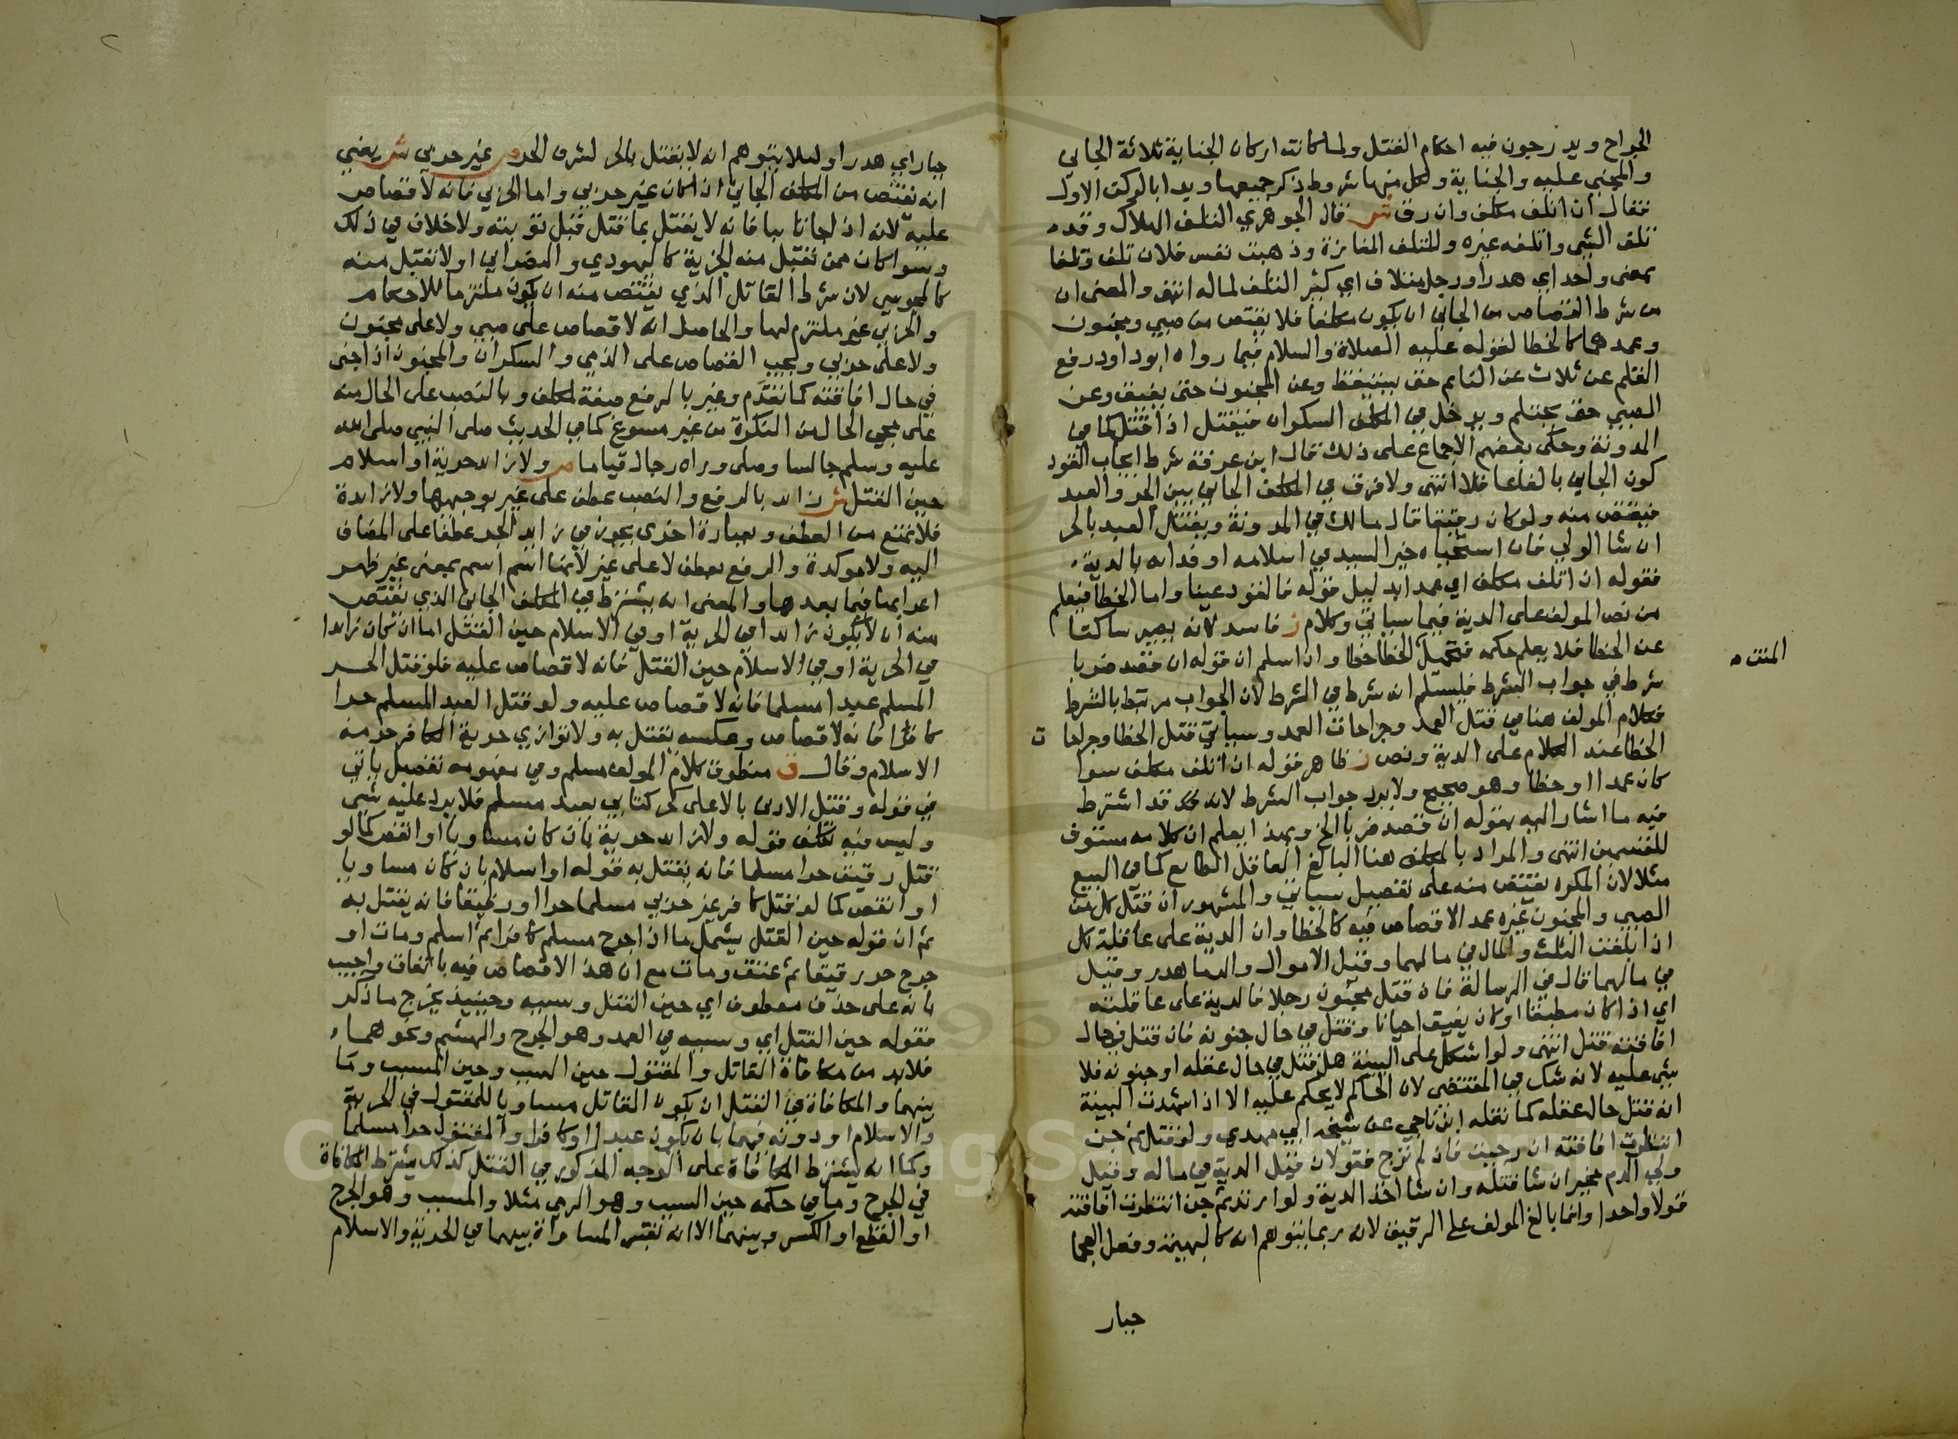 الجراح ويدرجون فيه احكام القتل ولما كانت اركان الجناية ثلاثة الجاني
والمجني عليه والجناية ولكل منها شروط ذكر جميعها وبدا بالركن الاول
فقال ان اتلف مكلف وان رق ش قال الجوهري التلف الهلاك وقد
تلف الشي واتلفه غيره والمتلف المفازة وذهبت نفس فلان تلفا وظلفا
بمعنى واحد اي هدرا ورجل متلاف اي كثير التلف لماله انتهى والمعنى ان
من شرط القصاص من الجاني ان يكون مكلفا فلا يقتص من صبي ومجنون
وعمدهما كالخطا لقوله عليه الصلاة والسلام فيما رواه ابو داود رفع
القلم عن ثلاث عن النايم حتى يستيقظ وعن المجنون حتى يفيق وعن
الصبي حتى يحتلم ويدخل في المكلف السكران فيقتل اذا قتل كما في
المدونة وحكى بعضهم الاجماع على ذلك قال ابن عرفة شرط ايجاب القود
كون الجاني بالغا عاقلا انتهى ولا فرق في المكلف الجاني بين الحر والعبد
فيقتص منه ولو كان رقيقا قال مالك في المدونة ويقتل العبد بالحر
ان شا الولي فان استحياه خير السيد في اسلامه او فدائه بالدية
فقوله ان اتلف مكلف اي عمدا بدليل قوله فالقود عينا واما الخطا فيعلم
من نص المولف على الدية فيما سياتي وكلام ز فاسد لانه يصير ساكتا
عن الخطا فلا يعلم حكمه فتحمل الخطا خطا وان اسلم ان قوله ان قصد ضربا
شرط في جواب الشرط فليسلم انه شرط في الشرط لان الجواب مرتبط بالشرط
فكلام المولف هنا في قتل العمد وجراحات العمد وسياتي قتل الخطا وجراحا ت
الخطا عند الكلام على الدية ونص ز ظاهر قوله ان اتلف مكلف سوا
كان عمدا او خطا وهو صحيح ولا يرد جواب الشرط لانه قد اشترط
فيه ما اشار اليه بقوله ان قصد ضربا الخ وبهذا يعلم ان كلامه مستوف
للقسمين انتهى والمراد بالمكلف هنا البالغ العاقل الطايع كما في البيع
مثلا لان المكره يقتص منه على تفصيل سياتي والمشهور ان قتل كل من
الصبي والمجنون غيره عمدا لا قصاص فيه كالخطا وان الدية على عاقلة كل
اذا بلغت الثلث والمال في مالهما وقيل الاموال والدما هدر وقيل
في مالهما قال في الرسالة فان قتل مجنون رجلا فالدية على عاقلته
اي اذا كان مطبقا او كان يفيق احيانا وقتل في حال جنونه فان قتل في حال
افاقته قتل انتهى ولو اشكل على البينة هل قتل في حال عقله او جنونه فلا
شي عليه لانه شك في المقتضى لان الحاكم لا يحكم عليه الا اذا شهدت البينة
انه قتل حال عقله كما نقله ابن ناجي عن شيخه ابي مهدي ولو قتل ثم جن
انتظرت افاقته ان رجيت فان لم ترج فقولان قيل الدية في ماله وقيل
ولي الدم مخير ان شا قتله وان شا اخذ الدية ولو ارتد ثم جن انتظرت افاقته
قولا واحدا وانما بالغ المولف على الرقيق لانه ربما يتوهم انه كالبهيمة وفعل العجما
جبار
المنت
جبار اي هدر او ليلا يتوهم انه لا يقتل بالحر لشرف الحر ص غير حربي ش يعني
انه يقتص من المكلف الجاني ان كان غير حربي واما الحربي فانه لا قصاص
عليه لانه اذا جا تايبا فانه لا يقتل بما قتل قبل توبته ولا خلاف في ذلك
وسوا كان ممن تقبل منه الجزية كاليهودي والنصراني او لا تقبل منه
كالمجوسي لان شرط القاتل الذي يقتص منه ان يكون ملتزما للاحكام
والحربي غير ملتزم لها والحاصل انه لا قصاص على صبي ولا على مجنون
ولا على حربي ويجب القصاص على الذمي والسكران والمجنون اذا جنى
في حال افاقته كما تقدم وغير بالرفع صفة لمكلف وبالنصب على الحال منه
على مجي الحال من النكرة من غير مسوغ كما في الحديث صلى النبي صلى الله
عليه وسلم جالسا وصلى وراه رجال قياما ص ولا زايد حرية او اسلام
حين القتل ش زايد بالرفع والنصب عطف على غير بوجهيها ولا زايدة
فلا تمتنع من العطف وبعبارة اخرى يجوز في زايد الجر عطفا على المضاف
اليه ولا موكدة والرفع بعطف لا على غير لانها اسم بمعنى غير ظهر
اعرابها فيما بعدها والمعنى انه يشترط في المكلف الجاني الذي يقتص
منه ان لا يكون زايدا في الحرية او في الاسلام حين القتل اما ان كان زايدا
في الحرية او في الاسلام حين القتل فانه لا قصاص عليه فلو قتل الحر
المسلم عبدا مسلما فانه لا قصاص عليه ولو قتل العبد المسلم حرا
كافرا فانه لا قصاص وعكسه يقتل به ولا توازي حرية الكافر حرمة
الاسلام وقال ق منطوق كلام المولف مسلم وفي مفهومه تفصيل ياتي
في قوله وقتل الادنى بالاعلى كحر كتابي بعبد مسلم فلا يرد عليه شي
وليس فيه تكلف قوله ولا زايد حرية بان كان مساويا او انقص كما لو
قتل رقيق حرا مسلما فانه يقتل به قوله او اسلام بان كان مساويا
او انقص كما لو قتل كافر غير حربي مسلما حرا او رقيقا فانه يقتل به
ثم ان قوله حين القتل يشمل ما اذا جرح مسلم كافرا ثم اسلم ومات او
جرح حر رقيقا ثم عتق ومات مع ان هذا لا قصاص فيه باتفاق واجيب
بانه على حذف معطوف اي حين القتل وسببه وحينيذ يخرج ما ذكر
فقوله حين القتل اي وسببه في العمد وهو الجرح والهشم ونحوهما
فلا بد من مكافاة القاتل والمقتول حين السبب وحين المسبب وما
بينهما والمكافاة في القتل ان يكون القاتل مساويا للمقتول في الحرية
والاسلام او دونه فيهما بان يكون عبدا او كافرا والمقتول حرا مسلما
وكما انه يشترط المكافاة على الوجه المذكور في القتل كذلك يشترط المكافاة
في الجرح وما في حكمه حين السبب وهو الرمي مثلا والمسبب وهو الجرح
او القطع او الكسر وبينهما الا انه تعتبر المساواة بينهما في الحرية والاسلام